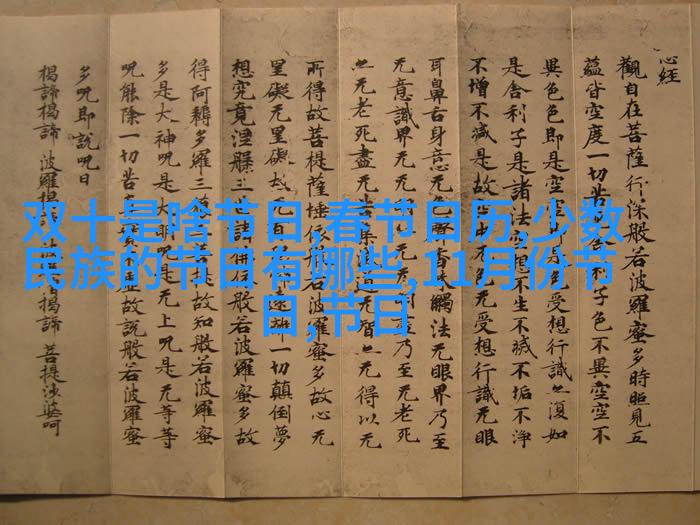 心经
觀自在菩薩行深般若波羅蜜多時照見五
蘊皆空度一切苦舍利子色不異空空不
異色色即是空空即是色受想行識亦復如
是舍利子是諸法想不生不滅不垢不淨
不增不減是故空中无色无受想行識无眼
耳鼻舌身意无色香味觸法无眼界乃至
无意識界无无乃至无老死
亦无老死盡无道无智亦无得以无
所得故菩提薩埵依般若波羅蜜多故心无
罣礙无罣礙故无有遠離一切顛倒夢
想究竟涅槃三世諸佛般若波羅蜜多故
得阿耨多羅三菩提故知般若波羅蜜
多是大神呪是大明呪是无上呪是无等等
呪能除一切苦不虛故說般若波羅蜜
多呪即說呪曰
揭諦揭諦 波羅揭諦 波羅揭諦 菩提莎婆呵
双十是啥节日,春节日历,少数
民族的节日有哪些,11月份节
日,节日